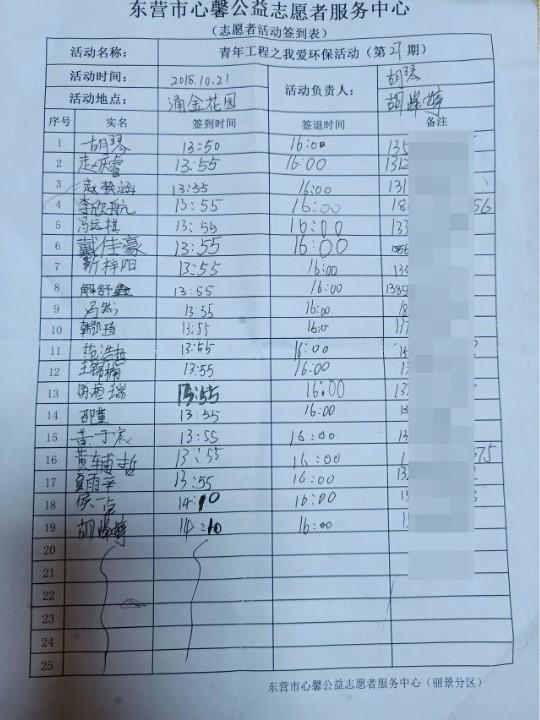 东营市心馨公益志愿者服务中心
(志愿者活动签到表)
活动名称: 青年工程之我爱环保活动(第21期)
活动时间: 2018.10.21 活动负责人: 胡琴
活动地点: 涌金花园 胡婷婷
序号 实名 签到时间 签退时间 备注
1 胡琴 13:50 16:00 135
2 13:55 16:00 1312
3 13:55 16:00 131
4 李欣航 13:55 16:00 18 56
5 冯运棋 13:55 16:00 133
6 戴佳豪 13:55 16:00
7 靳梓阳 13:55 16:00
8 解舒鑫 13:55 16:00 1385
9 13:55 16:00 18
10 13:55 16:00
11 范浩哲 13:55 16:00
12 13:55 16:00 1
13 13:55 16:00 13
14 13:55 16:00 13
15 13:55 16:00 13
16 黄辅哲 13:55 16:00 1 675
17 13:55 16:00
18 14:10 16:00
19 14:10 16:00 1
20
21
22
23
24
25
东营市心馨公益志愿者服务中心(丽景分区)